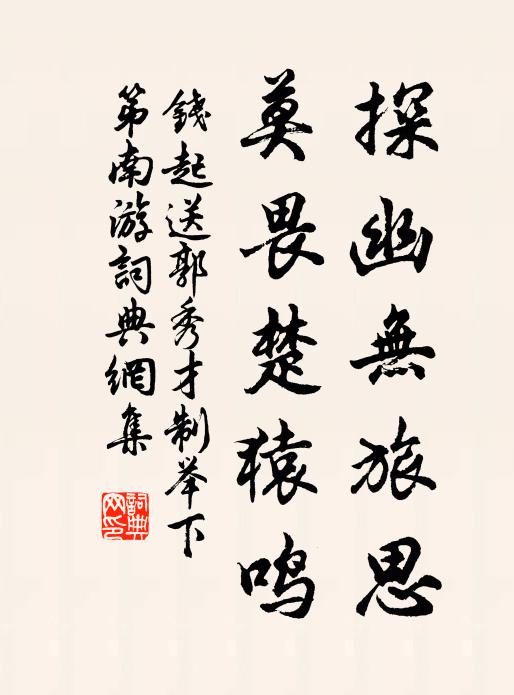 探幽無旅思
莫畏楚猿鸣
錢起送郭秀才制举下
第南游詞典網集
詞典
网印